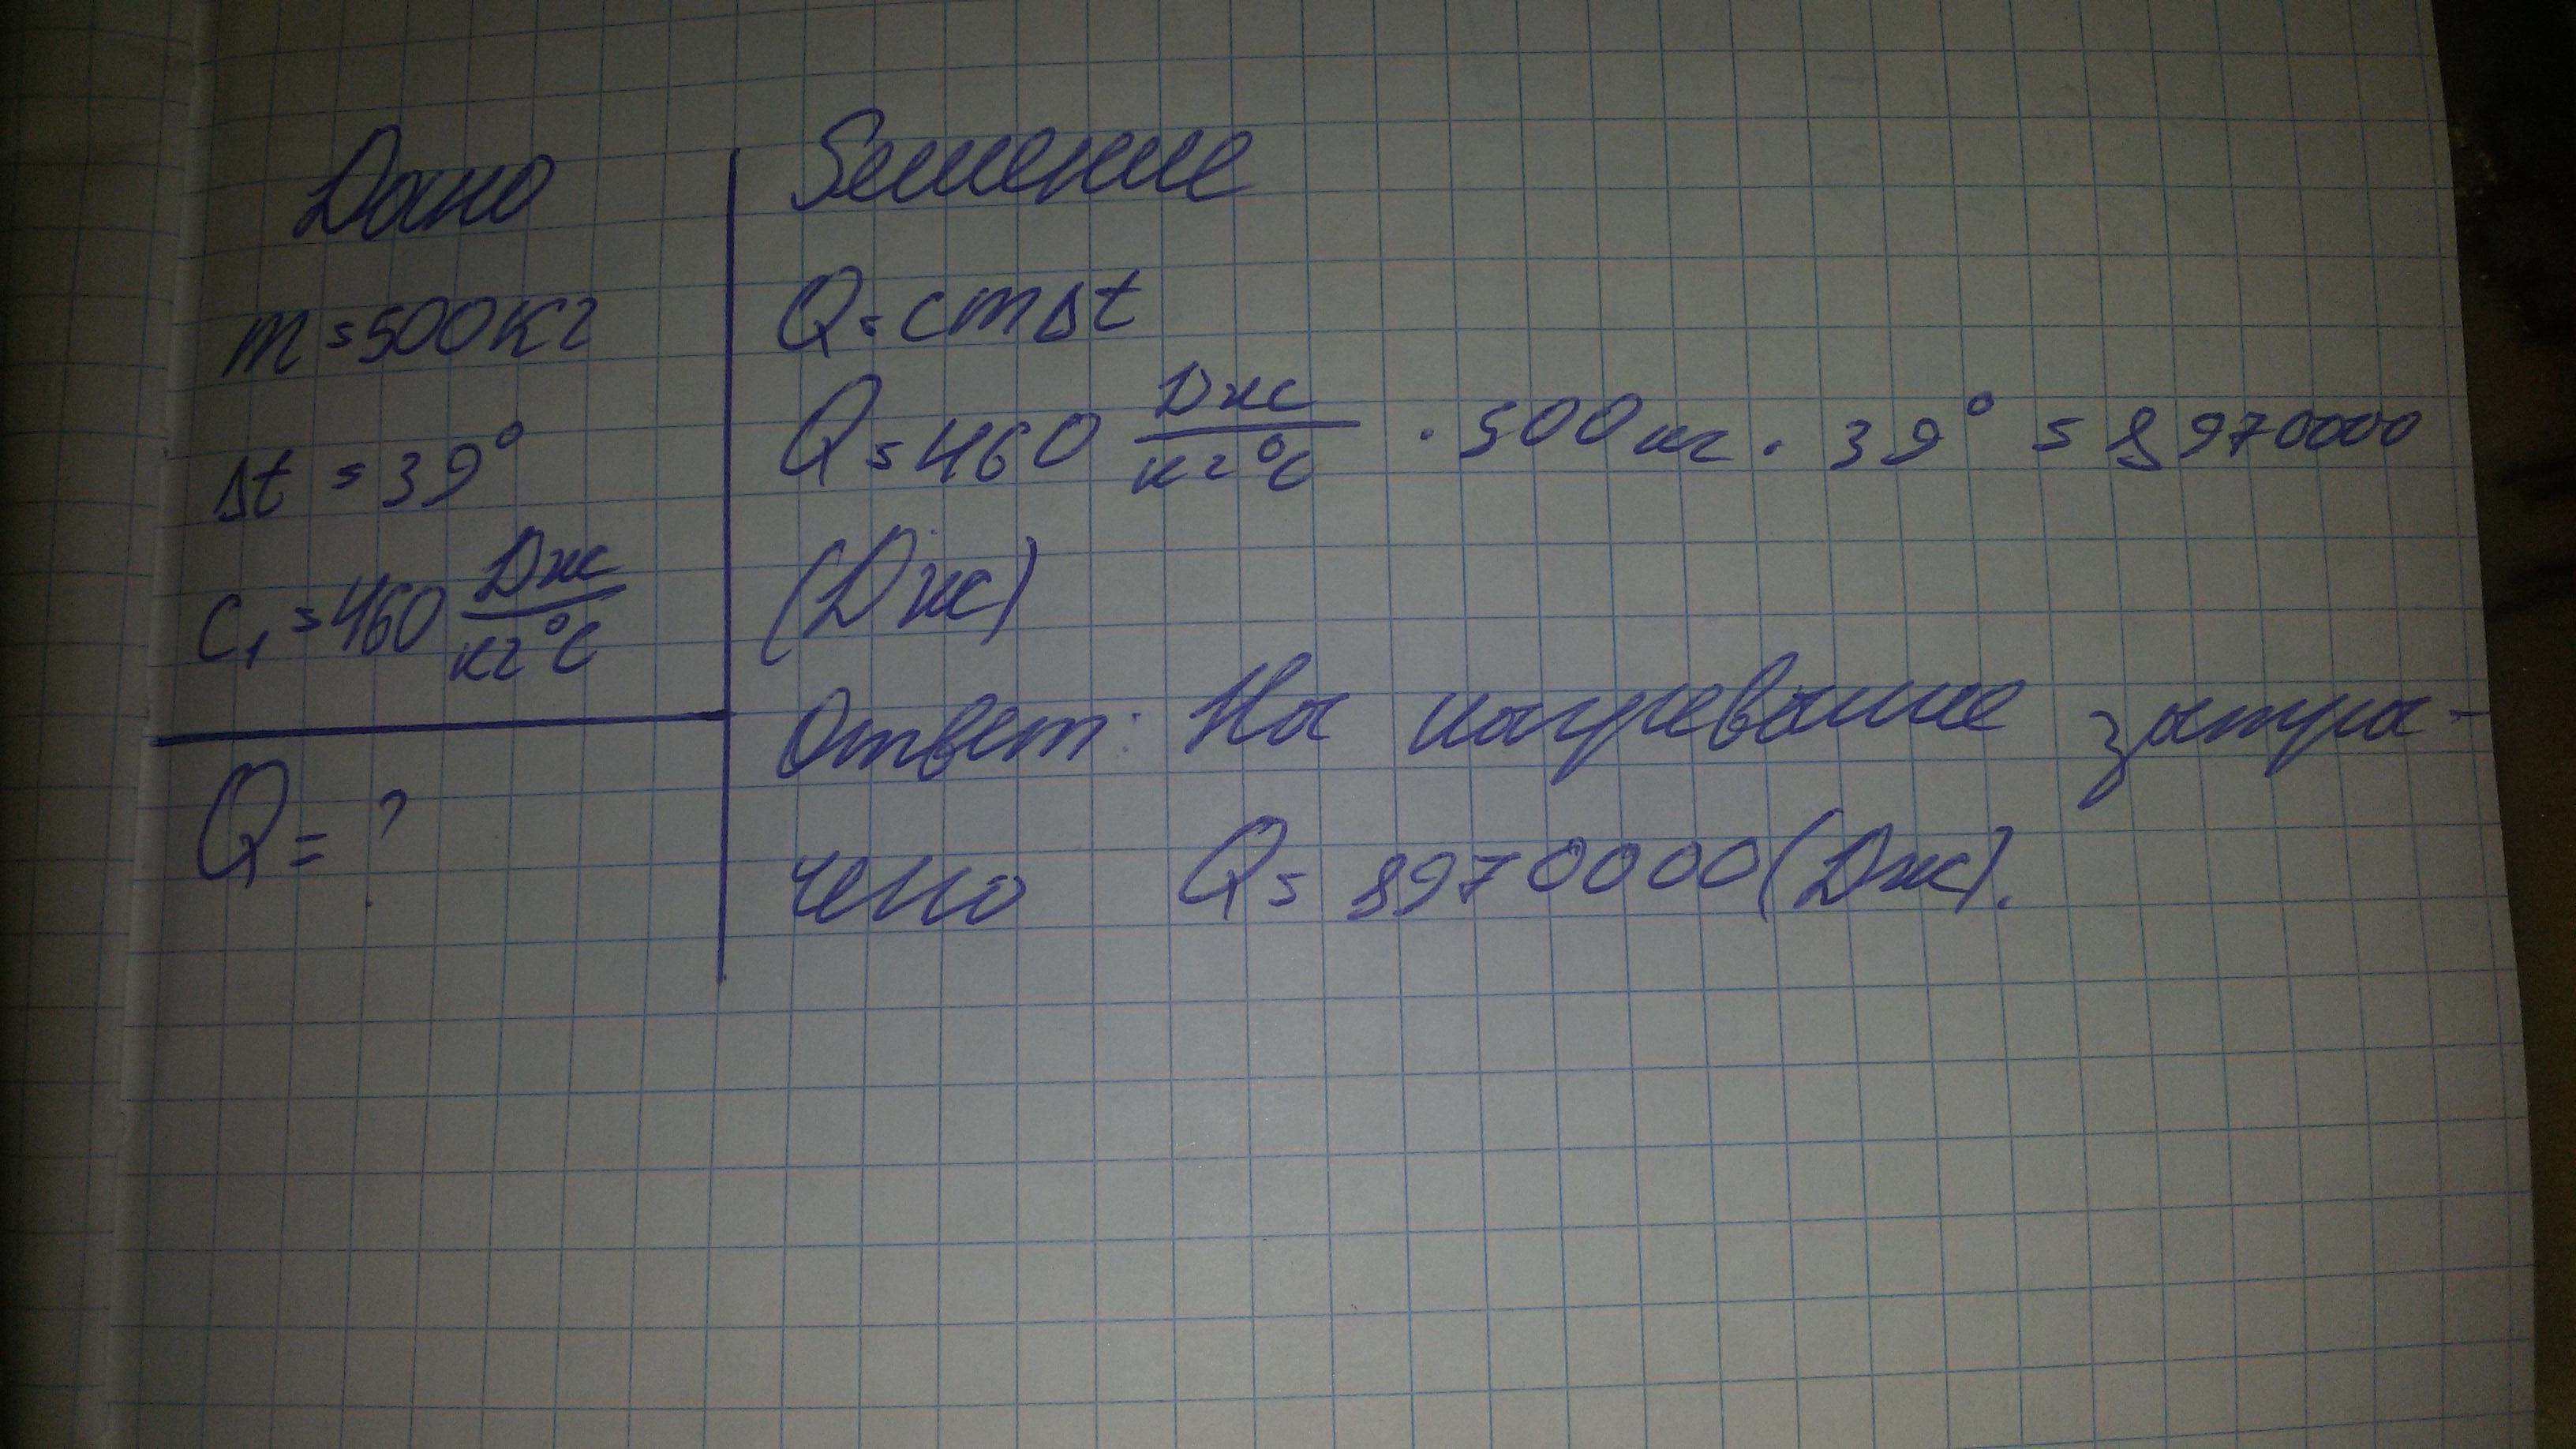 Дано
m = 500 кг
Δt = 39°
C₁ = 460 Дж/кг°С
Q = ?
Решение
Q = cmΔt
Q = 460 Дж/кг°С · 500 кг · 39° = 8970000
(Дж)
Ответ: На нагревание затра-
чено Q = 8970000 (Дж).